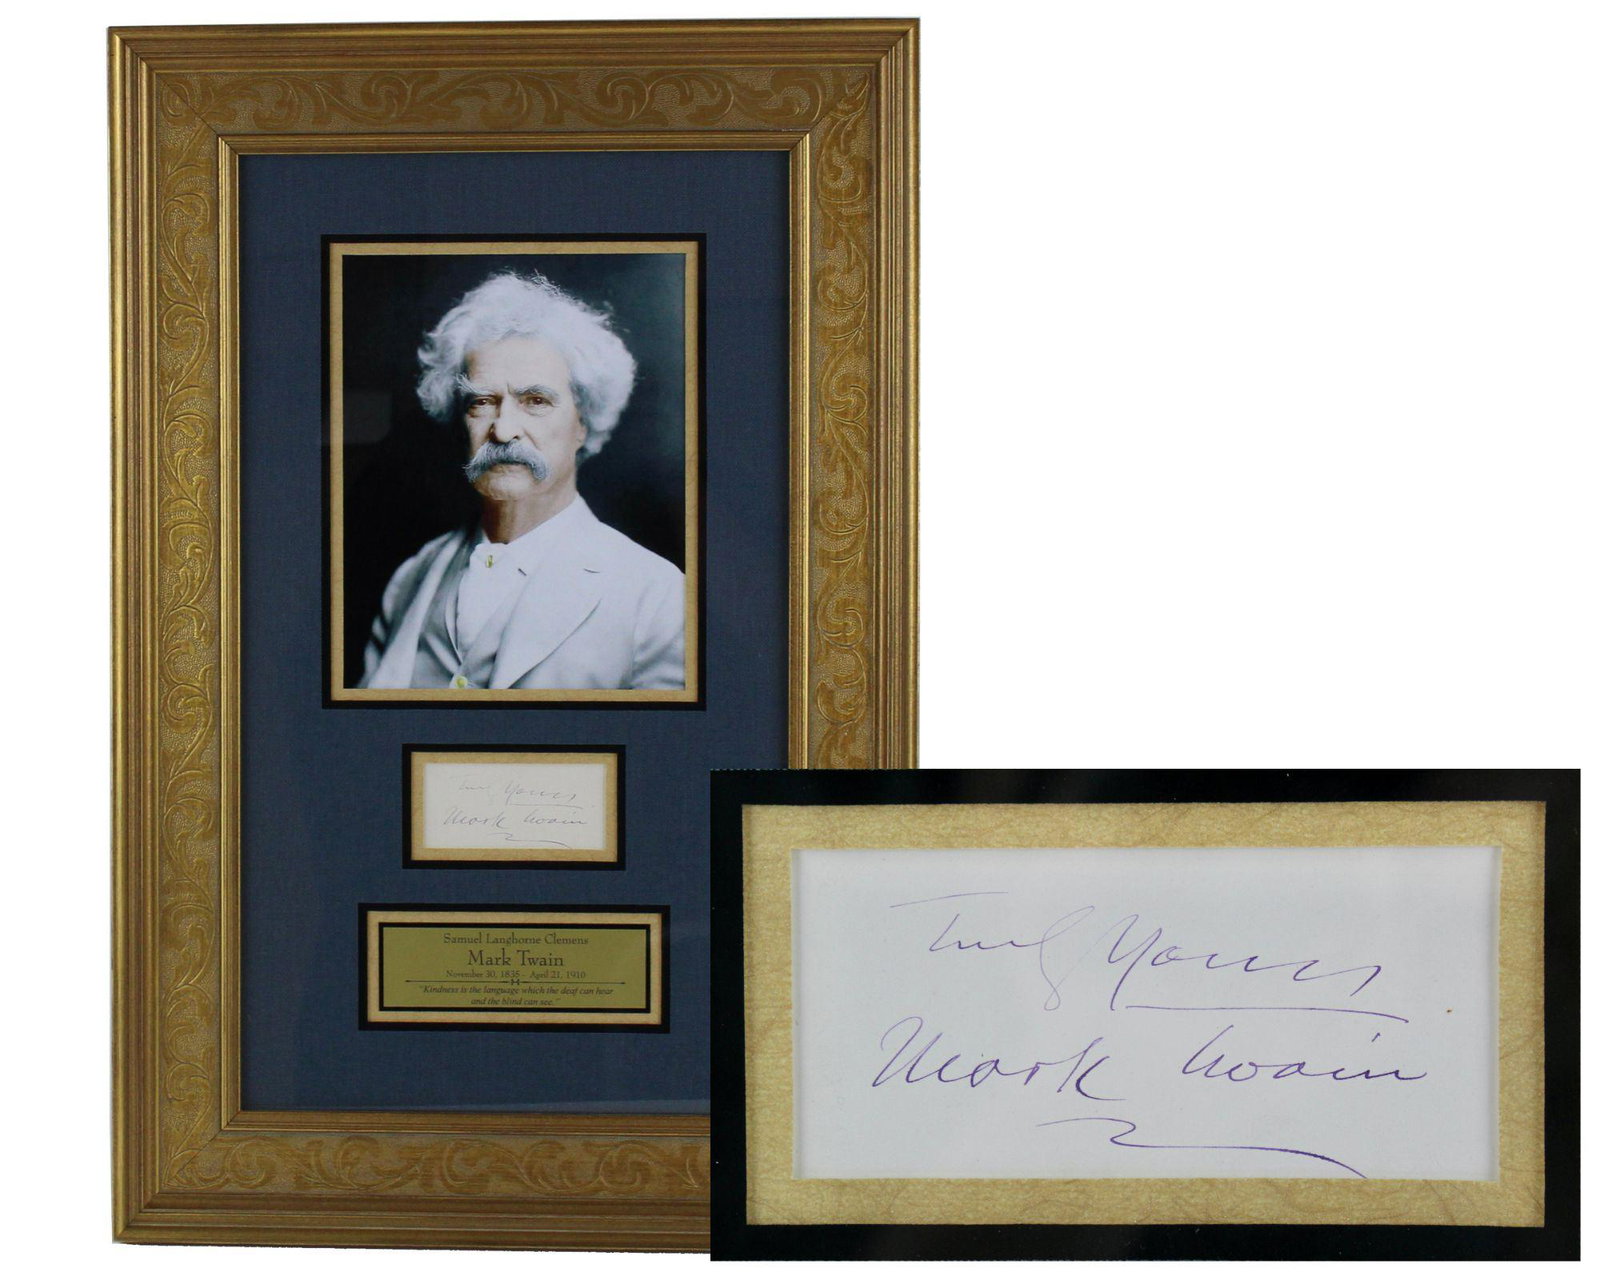 Truly Yours
Mark Twain
Samuel Langhorne Clemens
Mark Twain
November 30, 1835 - April 21, 1910
"Kindness is the language which the deaf can hear
and the blind can see."
Truly Yours
Mark Twain